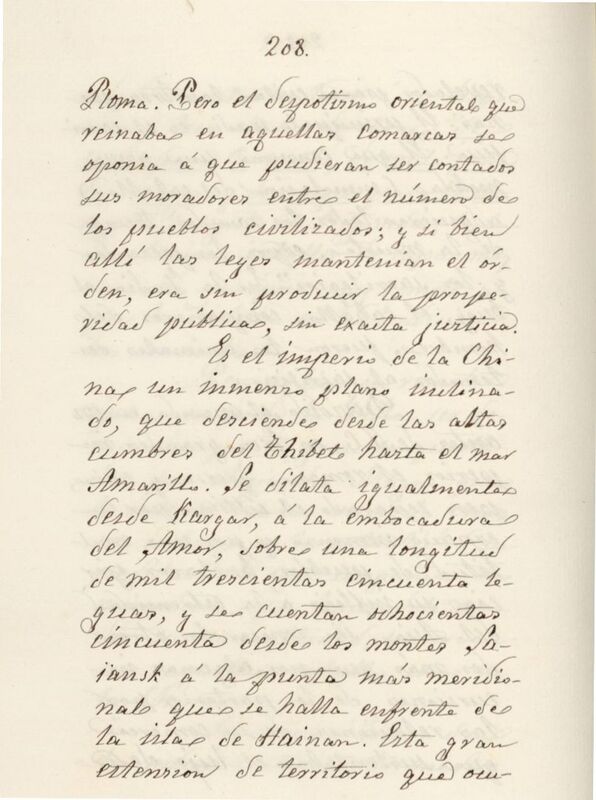 208.
Roma. Pero el despotismo oriental que
reinaba en aquellas comarcas se
oponia á que pudieran ser contados
sus moradores entre el número de
los pueblos civilizados; y si bien
allí las leyes mantenian el ór-
den, era sin producir la prospe-
ridad pública, sin exacta justicia.
Es el imperio de la Chi-
na un inmenso plano inclina-
do, que desciende desde las altas
cumbres del Thibet hasta el mar
Amarillo. Se dilata igualmente
desde Kasgar, á la embocadura
del Amor, sobre una longitud
de mil trescientas cincuenta le-
guas, y se cuentan ochocientas
cincuenta desde los montes Sa-
iansk á la punta más meridio-
nal que se halla enfrente de
la isla de Hainan. Esta gran
estension de territorio que ocu-